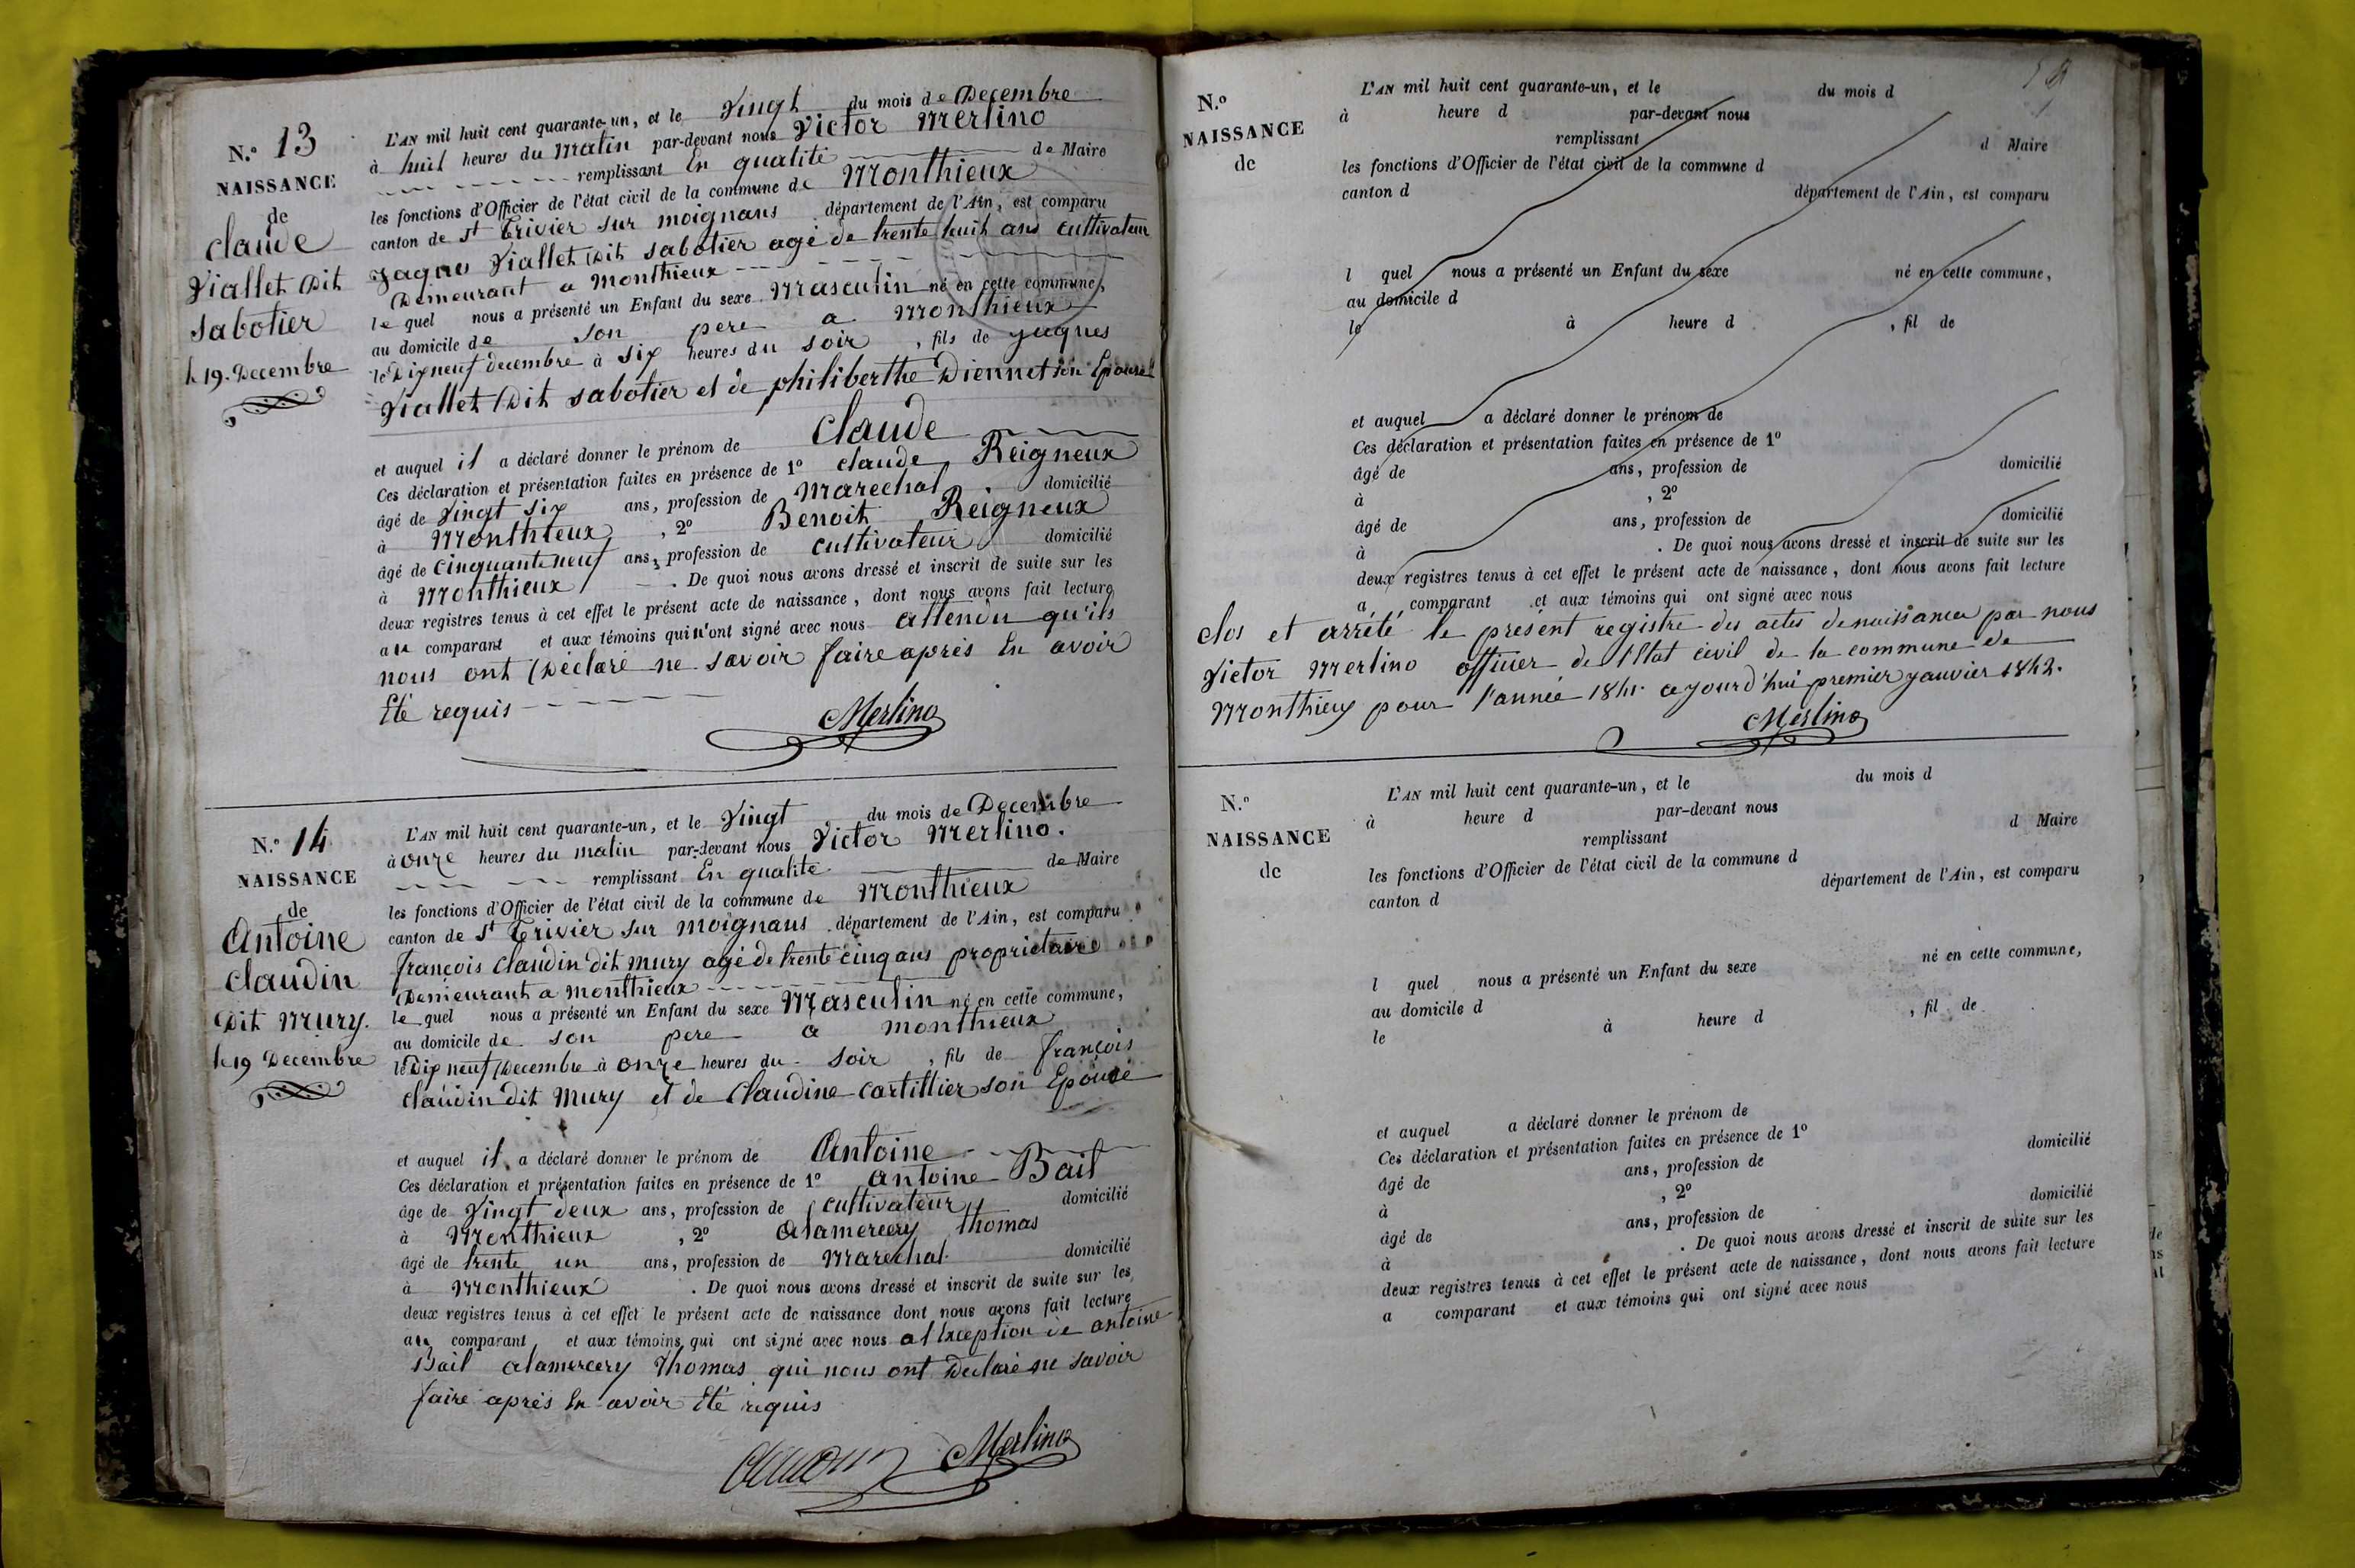 N.° 13
NAISSANCE
de
Claude
Viallet Dit
Sabotier
le 19. Decembre
L'AN mil huit cent quarante-un, et le Vingt du mois de Decembre
à huit heures du Matin par-devant nous Victor Merlino
remplissant En qualité de Maire
les fonctions d'Officier de l'état civil de la commune de Monthieux
canton de St Trivier sur moignans département de l'Ain, est comparu
Jaques Viallet Dit Sabotier agé de trente huit ans cultivateur
Demeurant a Monthieux
le quel nous a présenté un Enfant du sexe Masculin né en cette commune,
au domicile de son pere a Monthieux
le Dix neuf decembre à six heures du soir, fils de jaques
Viallet Dit sabotier et de philiberthe Diennet son Epouse
et auquel il a déclaré donner le prénom de Claude
Ces déclaration et présentation faites en présence de 1° claude Reigneux
âgé de Vingt six ans, profession de Marechal domicilié
à Monthieux, 2° Benoit Reigneux
âgé de Cinquante neuf ans, profession de cultivateur domicilié
à Monthieux. De quoi nous avons dressé et inscrit de suite sur les
deux registres tenus à cet effet le présent acte de naissance, dont nous avons fait lecture
au comparant et aux témoins qui n'ont signé avec nous attendu qu'ils
nous ont Déclaré ne savoir faire après En avoir
Eté requis
Merlino
N.° 14
NAISSANCE
de
Antoine
Claudin
Dit Mury.
le 19 Decembre
L'AN mil huit cent quarante-un, et le Vingt du mois de Decembre
à onze heures du matin par-devant nous Victor Merlino.
remplissant En qualité de Maire
les fonctions d'Officier de l'état civil de la commune de Monthieux
canton de St Trivier sur moignans département de l'Ain, est comparu
françois Claudin dit mury agé de trente cinq ans proprietaire
Demeurant a monthieux
le quel nous a présenté un Enfant du sexe Masculin né en cette commune,
au domicile de son pere a monthieux
le Dix neuf Decembre à onze heures du soir, fils de françois
claudin dit Mury et de Claudine Cartillier son Epouse
et auquel il a déclaré donner le prénom de Antoine
Ces déclaration et présentation faites en présence de 1° antoine Bail
âge de Vingt deux ans, profession de cultivateur domicilié
à Monthieux, 2° alamercery thomas
âgé de trente un ans, profession de Marechal domicilié
à Monthieux. De quoi nous avons dressé et inscrit de suite sur les
deux registres tenus à cet effet le présent acte de naissance dont nous avons fait lecture
au comparant et aux témoins qui ont signé avec nous a l'Exception de antoine
Bail alamercery Thomas qui nous ont Declaré ne savoir
faire après En avoir Eté requis
Merlino
N.°
NAISSANCE
de
L'AN mil huit cent quarante-un, et le du mois d
à heure d par-devant nous
remplissant d Maire
les fonctions d'Officier de l'état civil de la commune d
canton d département de l'Ain, est comparu
l quel nous a présenté un Enfant du sexe né en cette commune,
au domicile d
le à heure d, fil de
et auquel a déclaré donner le prénom de
Ces déclaration et présentation faites en présence de 1°
âgé de ans, profession de domicilié
à, 2°
âgé de ans, profession de domicilié
à. De quoi nous avons dressé et inscrit de suite sur les
deux registres tenus à cet effet le présent acte de naissance, dont nous avons fait lecture
a comparant et aux témoins qui ont signé avec nous
Clos et arrété le présent registre des actes de naissances par nous
Victor Merlino officier de l'Etat civil de la commune de
Monthieux pour l'année 1841 ce jourd'hui premier janvier 1842.
Merlino
N.°
NAISSANCE
de
L'AN mil huit cent quarante-un, et le du mois d
à heure d par-devant nous
remplissant d Maire
les fonctions d'Officier de l'état civil de la commune d
canton d département de l'Ain, est comparu
l quel nous a présenté un Enfant du sexe né en cette commune,
au domicile d
le à heure d, fil de
et auquel a déclaré donner le prénom de
Ces déclaration et présentation faites en présence de 1°
âgé de ans, profession de domicilié
à, 2°
âgé de ans, profession de domicilié
à. De quoi nous avons dressé et inscrit de suite sur les
deux registres tenus à cet effet le présent acte de naissance, dont nous avons fait lecture
a comparant et aux témoins qui ont signé avec nous